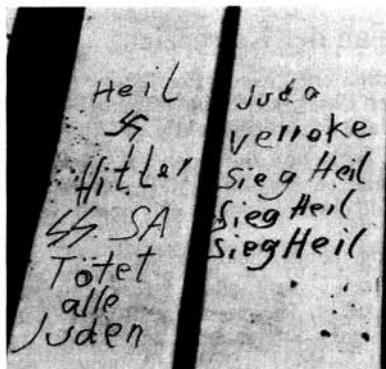 Heil
卐
Hitler
SS. SA
Tötet
alle
Juden
Juda
verroke
Sieg Heil
Sieg Heil
sieg Heil